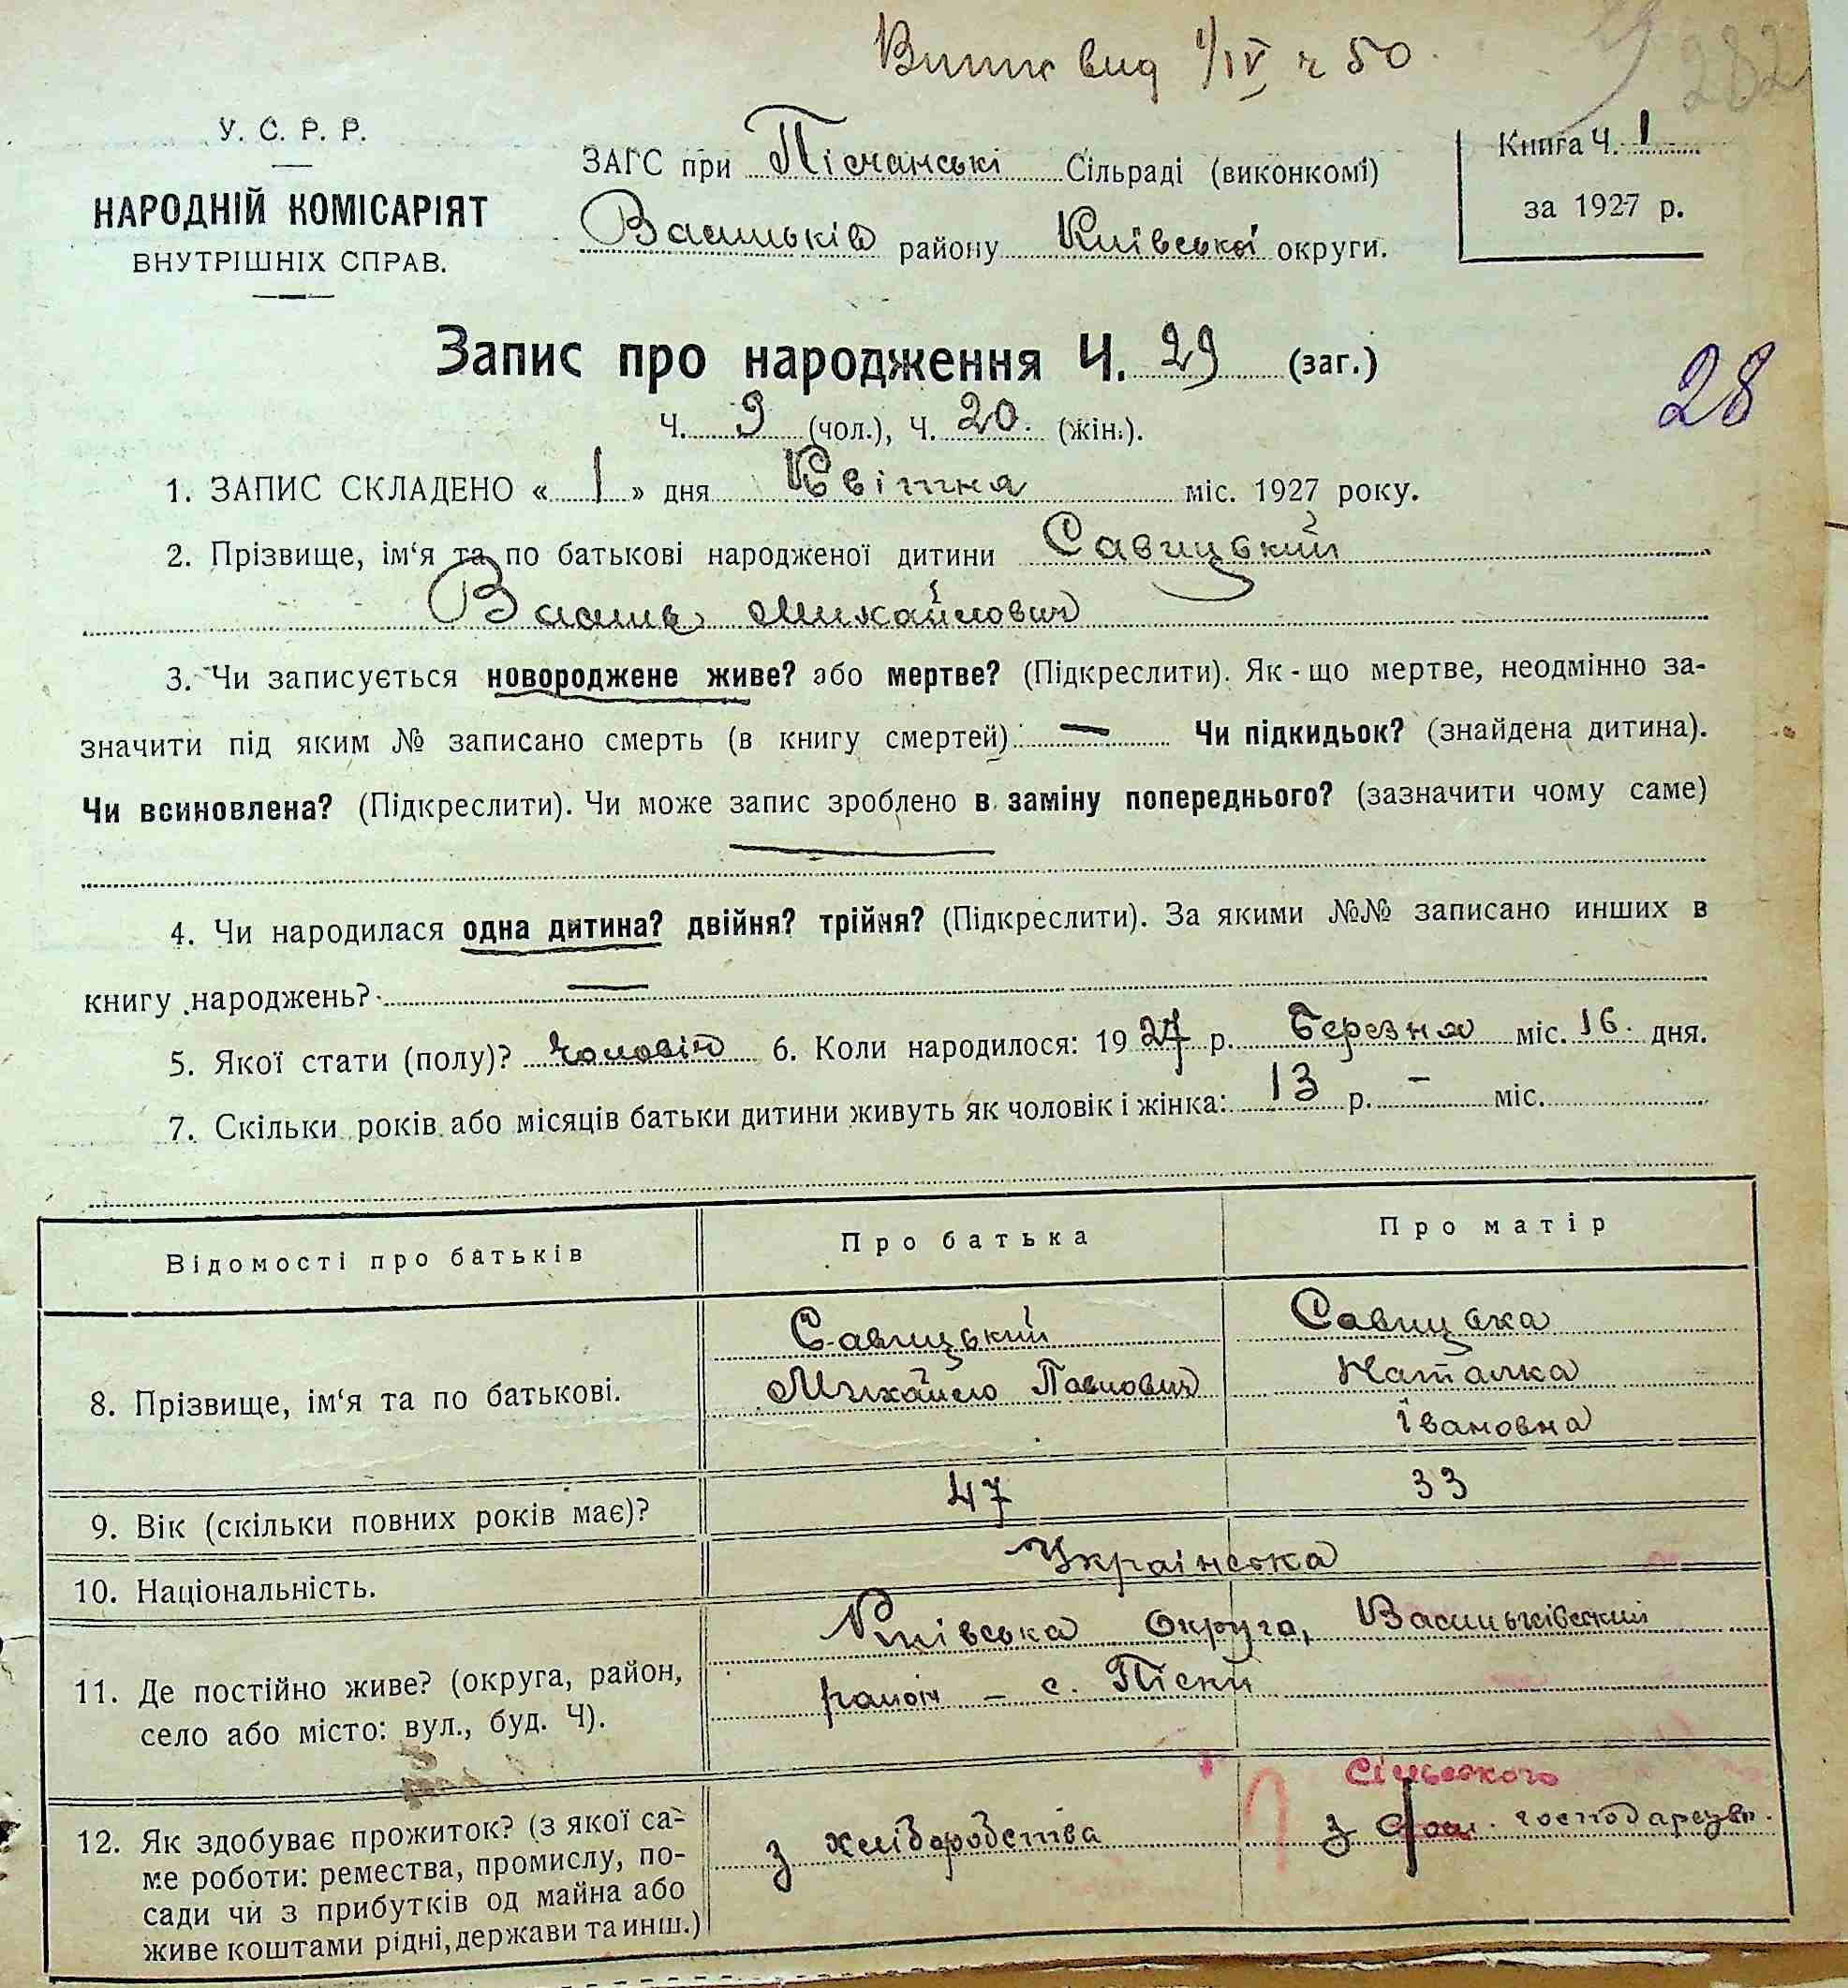 Випис вид 1/IV ч 50.
282
У. С. Р. Р.
НАРОДНІЙ КОМІСАРІЯТ
ВНУТРІШНІХ СПРАВ.
ЗАГС при Пісчанські Сільраді (виконкомі)
Васильків району Київської округи.
Книга Ч. 1
за 1927 р.
Запис про народження Ч. 29 (заг.)
28
Ч. 9 (чол.), Ч. 20. (жін.).
1. ЗАПИС СКЛАДЕНО « 1 » дня Квітня міс. 1927 року.
2. Прізвище, ім‘я та по батькові народженої дитини Савицький
Василь Михайлович
3. Чи записується новороджене живе? або мертве? (Підкреслити). Як-що мертве, неодмінно за-
значити під яким № записано смерть (в книгу смертей): — Чи підкидьок? (знайдена дитина).
Чи всиновлена? (Підкреслити). Чи може запис зроблено в заміну попереднього? (зазначити чому саме)
—
4. Чи народилася одна дитина? двійня? трійня? (Підкреслити). За якими №№ записано инших в
книгу народжень? —
5. Якої стати (полу)? чоловіч 6. Коли народилося: 1927 р. Березня міс. 16. дня.
7. Скільки років або місяців батьки дитини живуть як чоловік і жінка: 13 р. – міс.
Відомості про батьків
Про батька
Про матір
8. Прізвище, ім‘я та по батькові.
Савицький
Михайло Павлович
Савицька
Наталка
Івановна
9. Вік (скільки повних років має)?
47
33
10. Національність.
Українська
11. Де постійно живе? (округа, район,
село або місто: вул., буд. Ч).
Київська Округа, Васильківский
район – с. Піски
12. Як здобуває прожиток? (з якої са-
ме роботи: ремества, промислу, по-
сади чи з прибутків од майна або
живе коштами рідні, держави та инш.)
з хліборобства
сільского
з господарств.